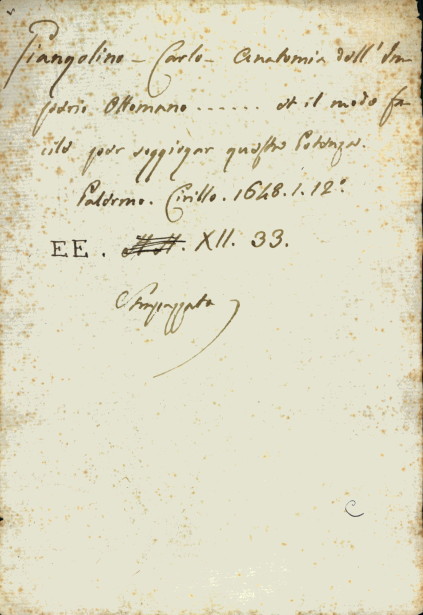 Giangolino - Carlo - Anatomia dell'Im
perio Ottomano ....... et il modo fa
cile per soggiogar questa Potenza.
Palermo. Cirillo. 1648. 1. 12°.
EE. XII. 33.
Strapazzato
C